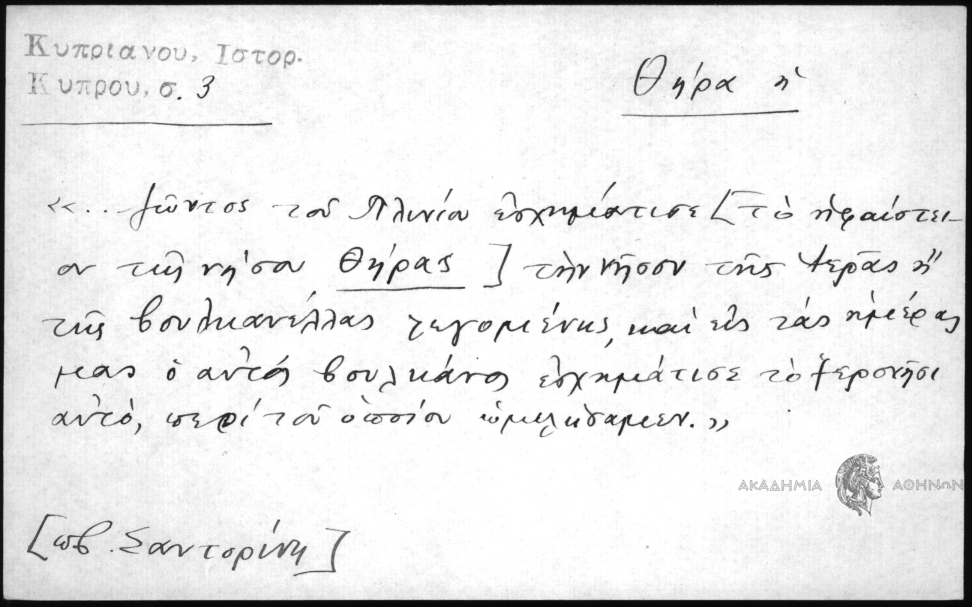 Κυπριανου, Ιστορ.
Κυπρου, σ. 3
Θήρα ἡ
«... ζῶντος τοῦ Πλινίου ἐσχημάτισε [τὸ ἡφαίστει-
ον τῆς νήσου Θήρας] τὴν νῆσον τῆς Ἱερᾶς ἢ
τῆς βουλκανέλλας λεγομένης, καὶ εἰς τὰς ἡμέρας
μας ὁ αὐτὸς βουλκάνος ἐσχημάτισε τὸ ξερονῆσι
αὐτὸ, περὶ τοῦ ὁποίου ὡμιλήσαμεν.»
ΑΚΑΔΗΜΙΑ ΑΘΗΝΩΝ
[πβ. Σαντορίνη]